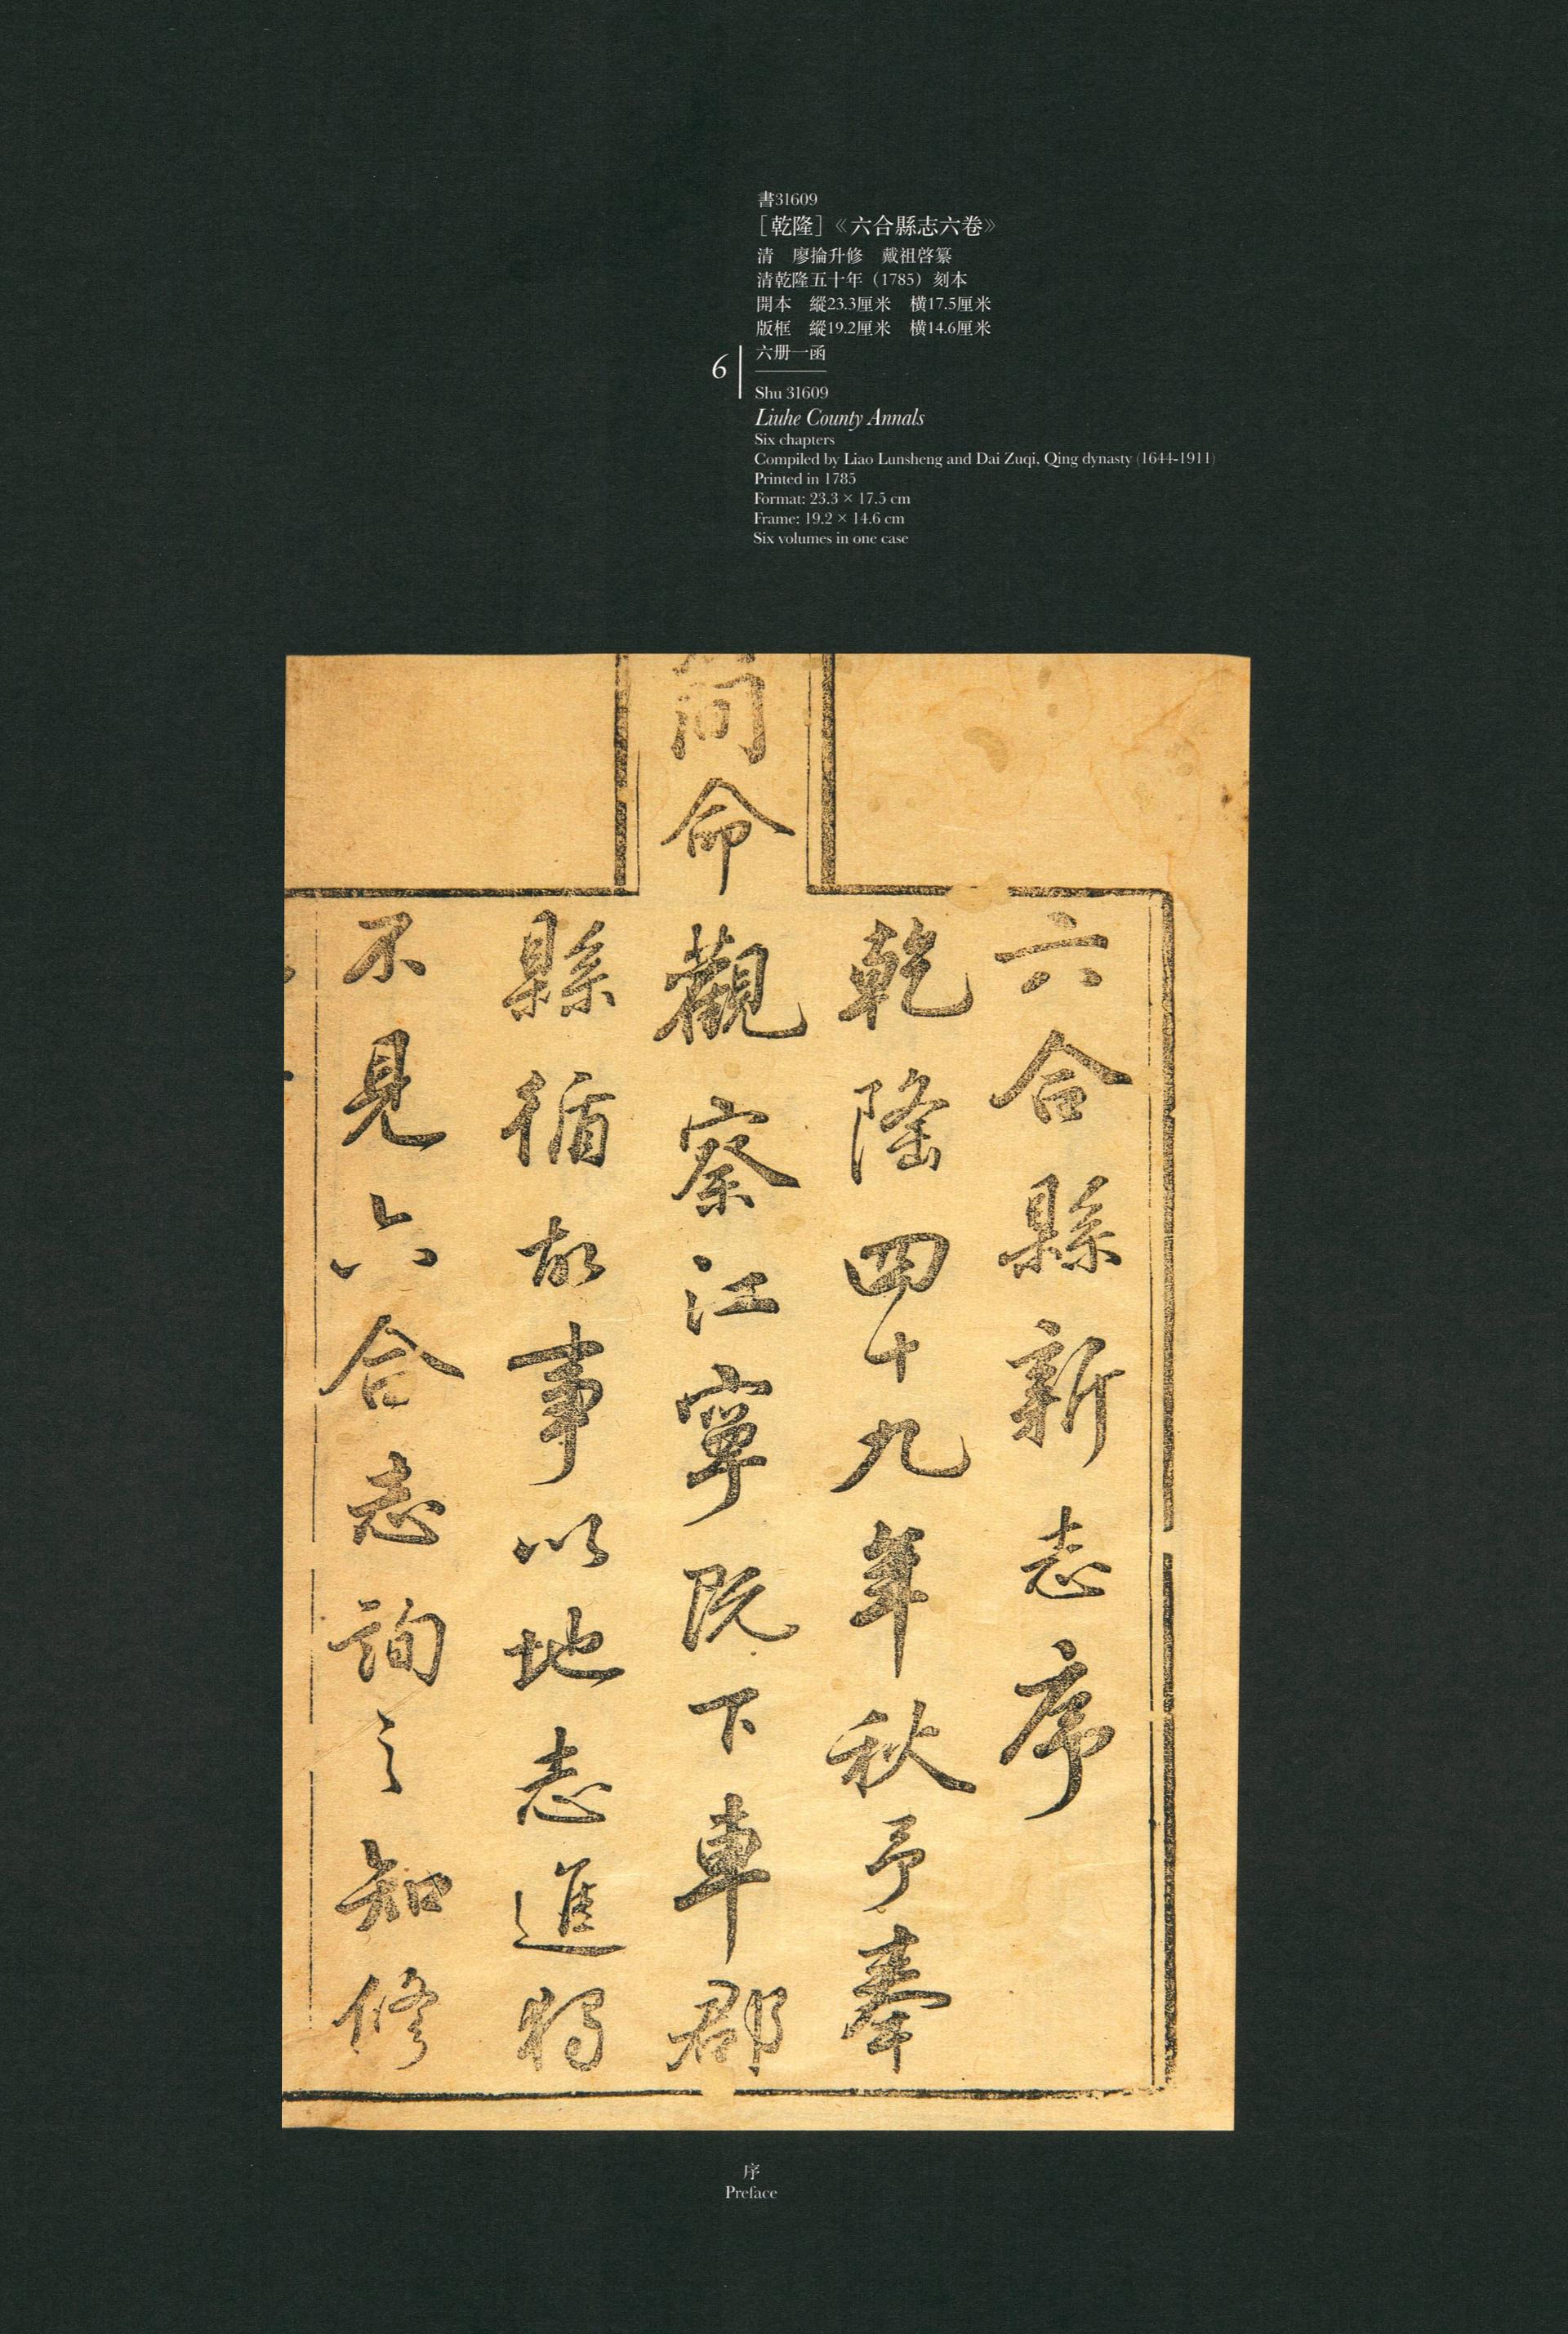 書31609
［乾隆］《六合縣志六卷》
清　廖掄升修　戴祖啓纂
清乾隆五十年（1785）刻本
開本　縱23.3厘米　橫17.5厘米
版框　縱19.2厘米　橫14.6厘米
六册一函
6
Shu 31609
Liuhe County Annals
Six chapters
Compiled by Liao Lunsheng and Dai Zuqi, Qing dynasty (1644-1911)
Printed in 1785
Format: 23.3 × 17.5 cm
Frame: 19.2 × 14.6 cm
Six volumes in one case
六合縣新志序
乾隆四十九年秋予奉
簡命觀察江寧既下車郡
縣循故事以地志進獨
不見六合志詢之知修
序
Preface